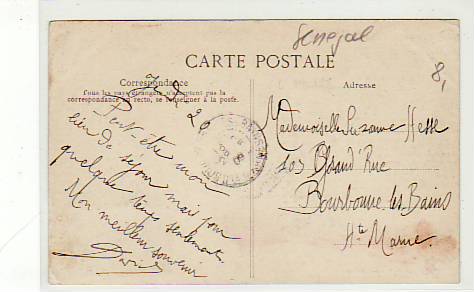 Senegal
8,
CARTE POSTALE
Correspondance
Tous les pays étrangers n'acceptent pas la
correspondance au recto, se renseigner à la poste.
Adresse
Jeudi 26
Peut être mon
lieu de séjour mais pour
quelque temps seulement.
Mon meilleur souvenir
Mademoiselle Suzanne Hesse
103 Grand' Rue
Bourbonne les Bains
Hte Marne